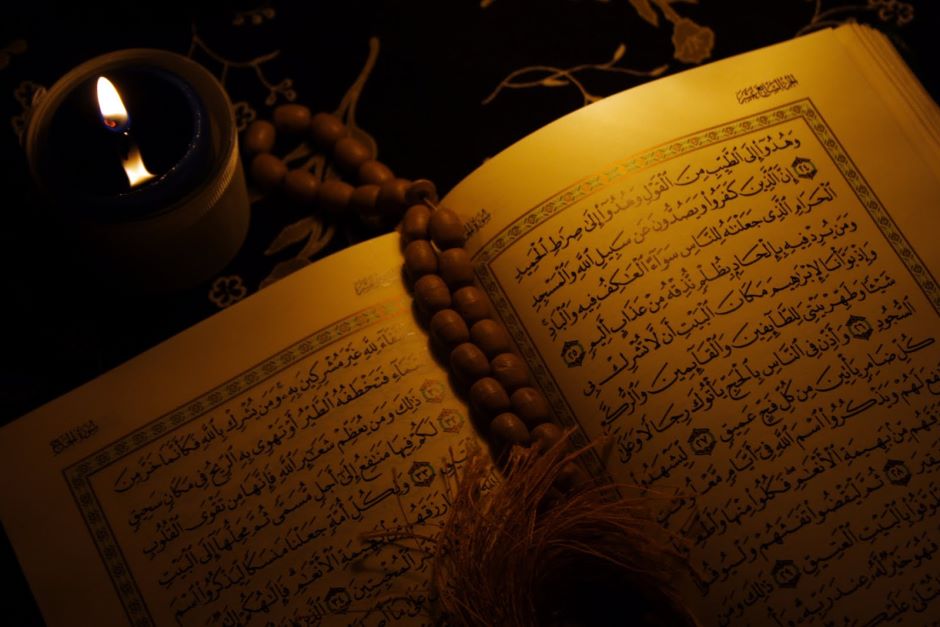 الجزء السابع عشر
وَهُدُوٓا۟ إِلَى ٱلطَّيِّبِ مِنَ ٱلْقَوْلِ وَهُدُوٓا۟ إِلَىٰ صِرَٰطِ ٱلْحَمِيدِ
٢٤ إِنَّ ٱلَّذِينَ كَفَرُوا۟ وَيَصُدُّونَ عَن سَبِيلِ ٱللَّهِ وَٱلْمَسْجِدِ
ٱلْحَرَامِ ٱلَّذِى جَعَلْنَٰهُ لِلنَّاسِ سَوَآءً ٱلْعَٰكِفُ فِيهِ وَٱلْبَادِ
وَمَن يُرِدْ فِيهِ بِإِلْحَادٍۭ بِظُلْمٍ نُّذِقْهُ مِنْ عَذَابٍ أَلِيمٍ ٢٥
وَإِذْ بَوَّأْنَا لِإِبْرَٰهِيمَ مَكَانَ ٱلْبَيْتِ أَن لَّا تُشْرِكْ بِى
شَيْـًٔا وَطَهِّرْ بَيْتِىَ لِلطَّآئِفِينَ وَٱلْقَآئِمِينَ وَٱلرُّكَّعِ
ٱلسُّجُودِ ٢٦ وَأَذِّن فِى ٱلنَّاسِ بِٱلْحَجِّ يَأْتُوكَ رِجَالًا وَعَلَىٰ
كُلِّ ضَامِرٍ يَأْتِينَ مِن كُلِّ فَجٍّ عَمِيقٍ ٢٧ لِّيَشْهَدُوا۟
لَهُمْ وَيَذْكُرُوا۟ ٱسْمَ ٱللَّهِ فِىٓ أَيَّامٍ
مِّنۢ بَهِيمَةِ ٱلْأَنْعَٰمِ فَكُلُوا۟ مِنْهَا
٢٨ ثُمَّ لْيَقْضُوا۟ تَفَثَهُمْ
بِٱلْبَيْتِ ٱلْعَتِيقِ ٢٩ ذَٰلِكَ وَمَن
فَهُوَ خَيْرٌ لَّهُۥ عِندَ رَبِّهِۦ
سورة الحج
لِلَّهِ غَيْرَ مُشْرِكِينَ بِهِۦ وَمَن يُشْرِكْ بِٱللَّهِ فَكَأَنَّمَا خَرَّ مِنَ
فَتَخْطَفُهُ ٱلطَّيْرُ أَوْ تَهْوِى بِهِ ٱلرِّيحُ فِى مَكَانٍ سَحِيقٍ
ذَٰلِكَ وَمَن يُعَظِّمْ شَعَٰٓئِرَ ٱللَّهِ فَإِنَّهَا مِن تَقْوَى ٱلْقُلُوبِ
لَكُمْ فِيهَا مَنَٰفِعُ إِلَىٰٓ أَجَلٍ مُّسَمًّى ثُمَّ مَحِلُّهَآ إِلَى ٱلْبَيْتِ
وَلِكُلِّ أُمَّةٍ جَعَلْنَا مَنسَكًا لِّيَذْكُرُوا۟ ٱسْمَ
بَهِيمَةِ ٱلْأَنْعَٰمِ فَإِلَٰهُكُمْ
ٱلْمُخْبِتِينَ ٣٤ ٱلَّذِينَ